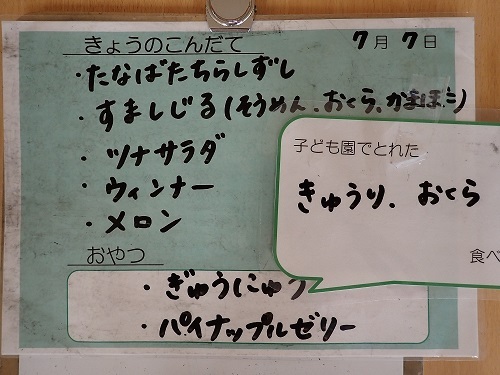 きょうのこんだて 7月7日
・たなばたちらしずし
・すましじる(そうめん、おくら、かまぼこ)
・ツナサラダ
・ウィンナー
・メロン
おやつ
・ぎゅうにゅう
・パイナップルゼリー
子ども園でとれた
きゅうり、おくら
食べ